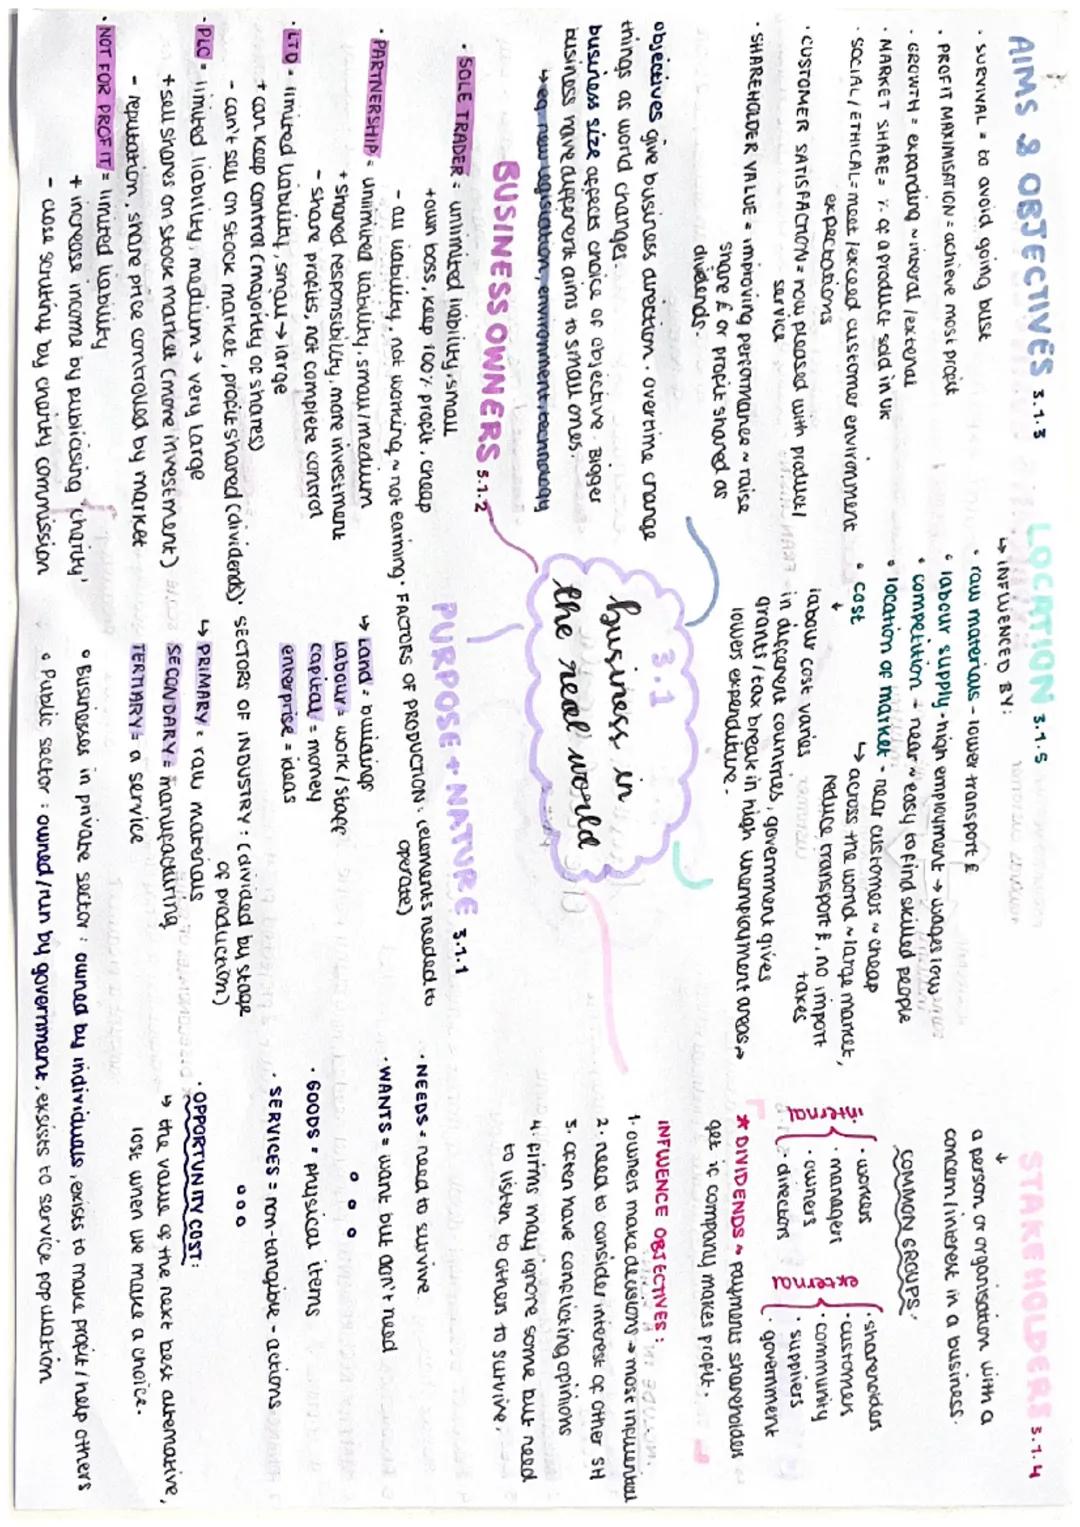 AIMS & OBJECTIVES 3.1.3
· SURVIVAL = to avoid going bust
· PROFIT MAXIMISATION = achieve most profit
· GROWTH = expanding ~ interal / external
· MARKET SHARE = % of a product sold in UK
· SOCIAL / ETHICAL = meet / exceed customer environment
expectations
· CUSTOMER SATISFACTION = how pleased with product /
service
· SHAREHOLDER VALUE = improving performance ~ raise
share £ or profit shared as
dividends.
objectives give business direction · overtime change
things as world changes.
business size affects choice of objective · Bigger
business have different aims to small ones.
↳ eg new legislation, environment, technology
LOCATION 3.1.5
↳ INFLUENCED BY:
• raw materials - lower transport £
• labour supply - high employment → wages low
• competition → near ~ easy to find skilled people
• location of market - near customers ~ cheap
↳ across the world ~ large market,
reduce transport £, no import
taxes
• cost
↓
labour cost varies
in different countries, government gives
grants / tax break in high unemployment areas →
lowers expenditure.
STAKEHOLDERS 3.1.4
↓
a person or organisation with a
concern / interest in a business.
COMMON GROUPS:
internal
· workers
· managers
· owners
· directors
external
· shareholders
· customers
· community
· suppliers
· government
* DIVIDENDS ~ payments shareholders
get if company makes profit.
INFLUENCE OBJECTIVES:
1. owners make decisions → most influential
2. need to consider interest of other SH
3. often have conflicting opinions
4. firms may ignore some but need
to listen to others to survive.
3.1
business in
the real world
BUSINESS OWNERS 3.1.2
· SOLE TRADER = unlimited liability, small
+ own boss, keep 100% profit, cheap
- all liability, not working ~ not earning
· PARTNERSHIP = unlimited liability, small / medium
+ shared responsibility, more investment
- share profits, not complete control
· LTD = limited liability, small → large
+ can keep control (majority of shares)
- can't sell on stock market, profit shared (dividends)
· PLC = limited liability, medium → very large
+ sell shares on stock market (more investment)
- reputation, share price controlled by market
· NOT FOR PROFIT = limited liability
+ increase income by publicising 'charity'
- close scrutiny by charity commission
PURPOSE + NATURE 3.1.1
· FACTORS OF PRODUCTION: (elements needed to
operate)
↳ Land = buildings
Labour = work / staff
capital = money
enterprise = ideas
· SECTORS OF INDUSTRY: (divided by stage
of production)
↳ PRIMARY = raw materials
SECONDARY = manufacturing
TERTIARY = a service
· NEEDS = need to survive
· WANTS = want but don't need
· GOODS = physical items
· SERVICES = non-tangible - actions
· OPPORTUNITY COST:
↳ the value of the next best alternative,
lost when we make a choice.
• Businesses in private sector: owned by individuals, exists to make profit / help others
• Public sector: owned / run by government, exsists to service population